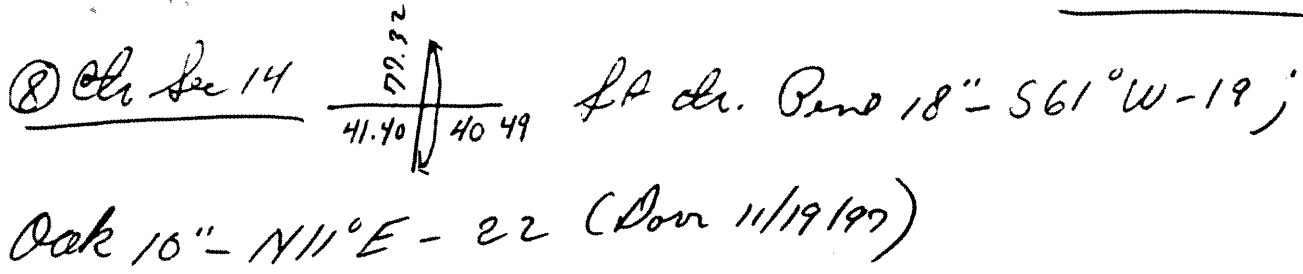 ⑧ Ctr Sec 14 77.32 41.40 40 49 Pine 18" - S61°W - 19;
Oak 10" - N11°E - 22 (Dorr 11/19/97)